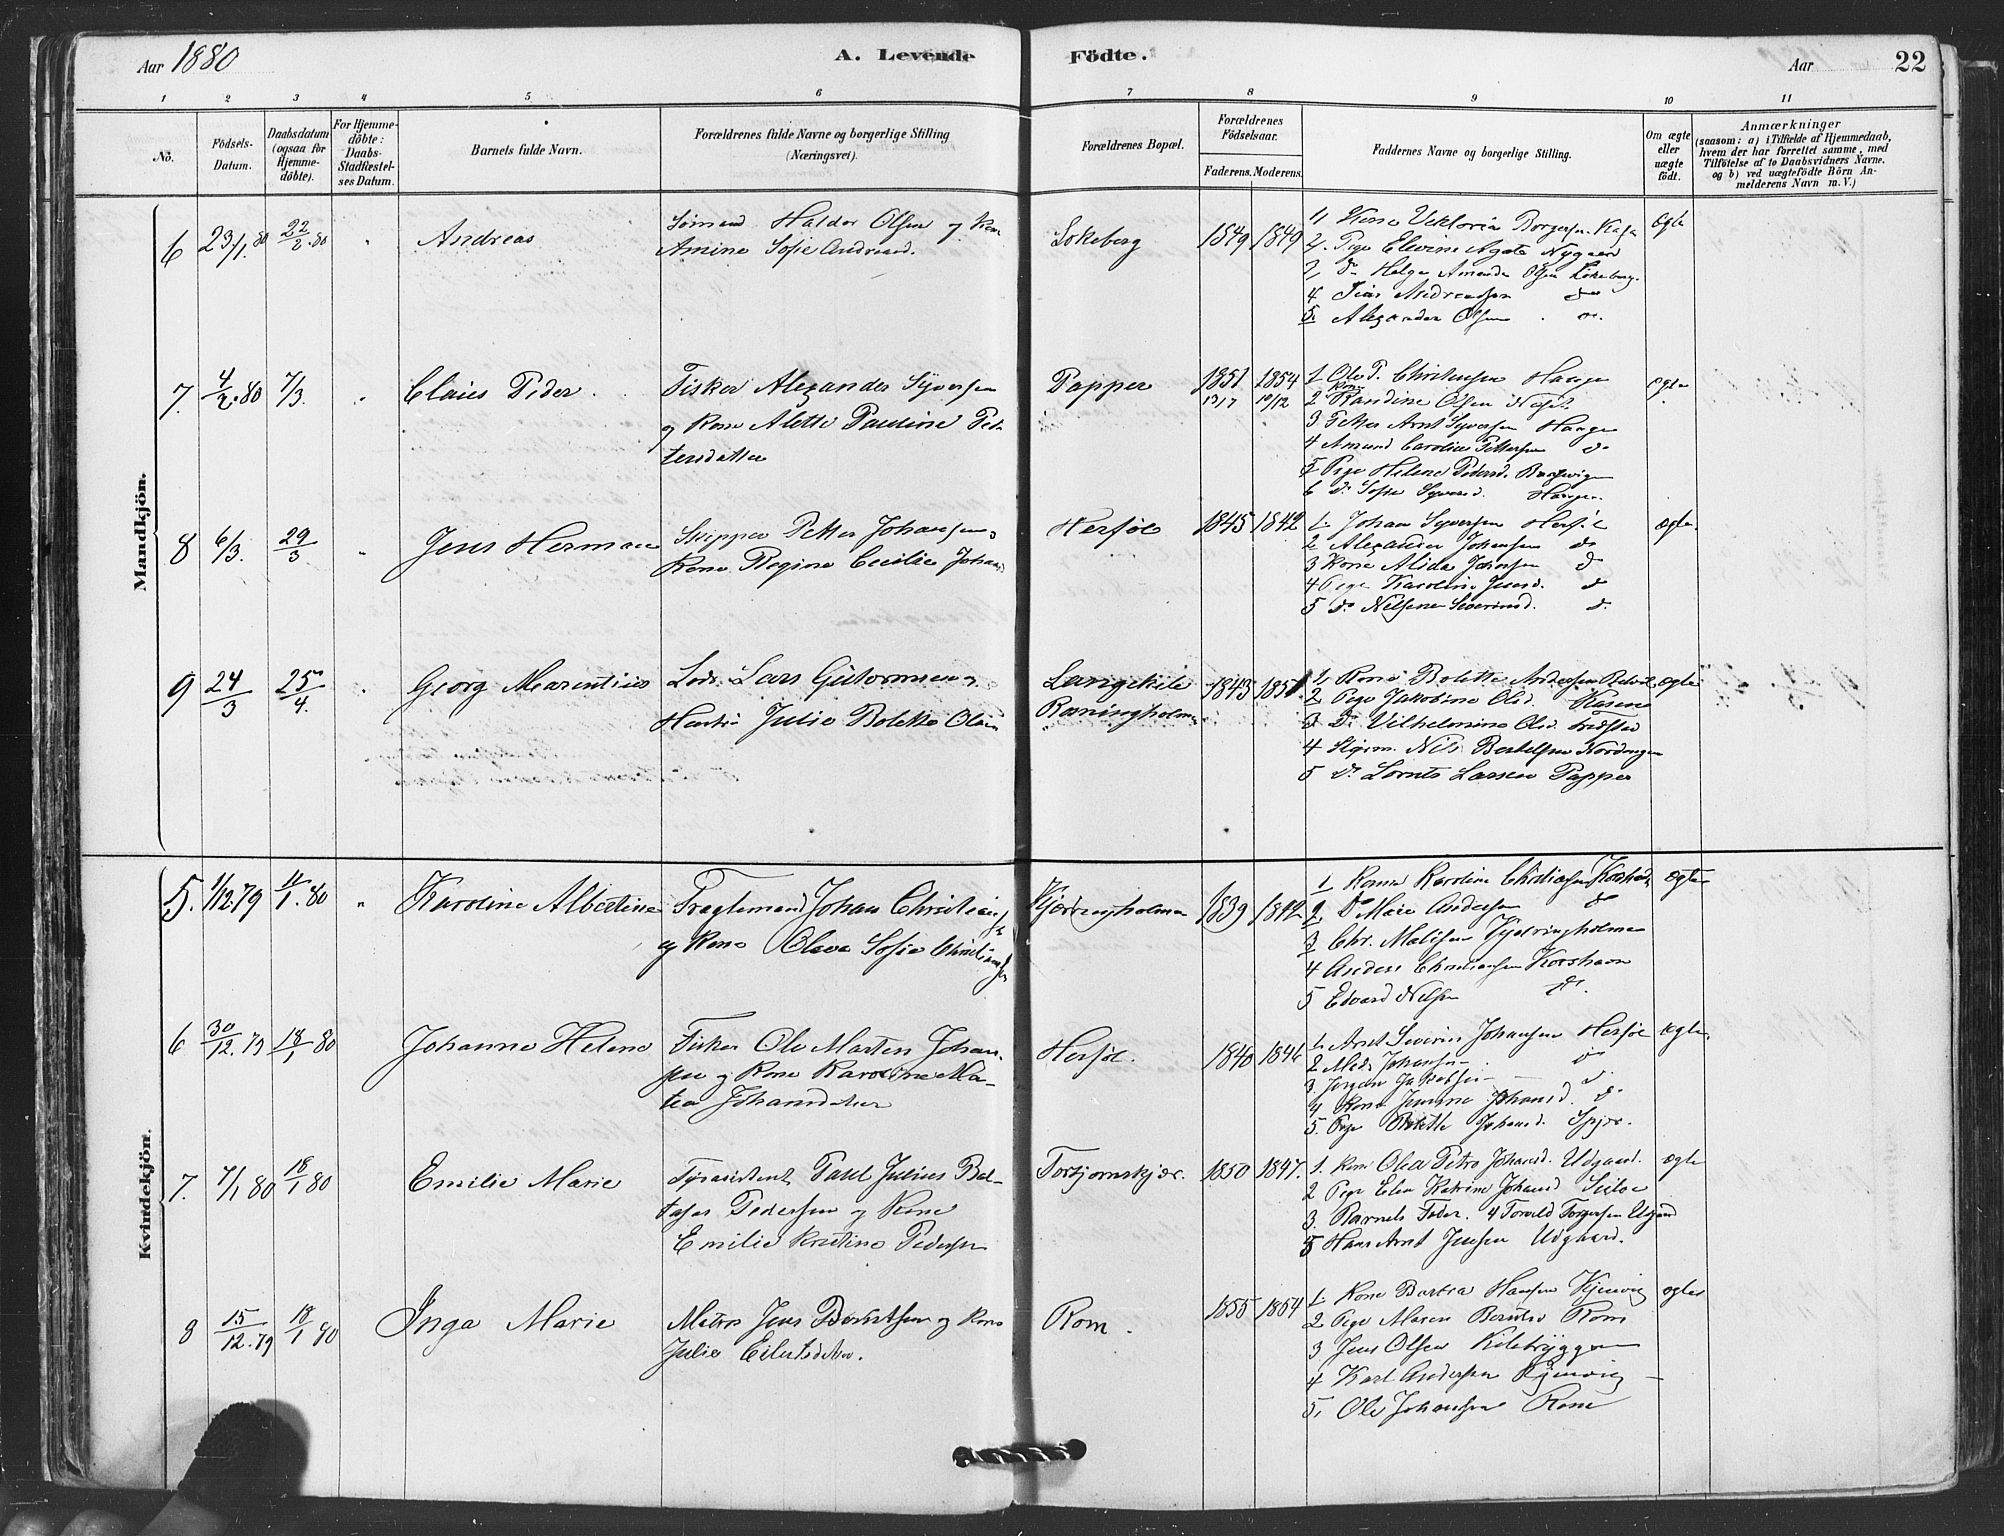 Aar 1880
A. Levende
Födte.
Aar
22
1 2 3 4 5 6 7 8 9 10 11
No.
Födsels-Datum.
Daabsdatum (ogsaa for Hjemmedöbte).
For Hjemmedöbte: Daabs-Stadfæstelses Datum.
Barnets fulde Navn.
Forældrenes fulde Navne og borgerlige Stilling (Næringsvei).
Forældrenes Bopæl.
Forældrenes Födselsaar.
Faderens. Moderens.
Faddernes Navne og borgerlige Stilling.
Om ægte eller uægte födt.
Anmærkninger
(saasom: a) i Tilfælde af Hjemmedaab,
hvem der har forrettet samme, med
Tilföielse af to Daabsvidners Navne.
og b) ved uægtefödte Börn Anmelderens Navn m. V.)
Mandkjön.
6 23/1.80 22/2.80 " Andreas
Sömand Haldor Olsen og Kone
Amine Sofie Andreasd.
Lokeberg 1849. 1849
1, Kone Viktoria Borgersen Kasa
2. Pige Elevine Agate Nygaard
3, do Helga Amanda Olsen Lokeberg.
4 Jens Andreassen do
5. Alexander Olsen do.
Ægte
7. 4/2.80 7/3. " Claus Peder
Fisker Alexander Syversen
og Kone Alette Pauline Pedersdatter
Papper 1851 13/7 1854 10/12
1. Ole P. Christensen Hauge
2 Kone Randine Olsen Næset
3 Petter Arnt Syversen Hauge
4 Amund Carolius Pettersen do
5 Pige Helene Pedersd.
6 do Sofie Syversd. Haugen.
ægte
8 6/3. 29/3 " Jens Herman
Skipper Petter Johansen og
Kone Regine Cecilie Johansd
Herföl 1845 1842
1. Johan Syversen Herföl
2 Alexander Johansen do
3 Kone Alida Johansen do
4 Pige Karoline Jensd. do
5 do Nilsine Severinsd. do
ægte
9 24/3 25/4. " Georg Marentius
Lods Lars Guttormsen og
Hustru Julie Bolette Olsen
Langekile
Ræningholmen
1843 1851.
1. Kone Bolette Andersen
2 Pige Jakobine Olsd. Kasene
3 do Vilhelmine Olsd.
4 Styrm. Nils Bertelsen Nordengen
5 do Lornts Larsen Papper
ægte
Kvindekjön.
5. 1/12.79 4/1.80 " Karoline Albertine
Fragtemand Johan Christiansen
og Kone Olava Sofie Christiansen
Kjedringholmen 1839 1842
1 Kone Karoline Christiansen Korshavn
2. do Marie Andersen do
3 Chr. Mathisen Kjedringholmen
4 Anders Christiansen Korshavn
5 Edvard Nilsen do.
Ægte
6 30/12.79 18/1 80 Johanne Helene
Fisker Ole Marten Johansen
og Kone Karoline Matea
Johansdatter
Herföl. 1840 1846
1. Arnt Severin Johansen Herföl
2 Mads Johansen do
3. Jörgen Jakobsen do
4 Kone Johansd. do
5. Pige Bolette Johansd. Spjær.
Ægte
7. 7/1 80 18/1 80 Emilie Marie
Fyrassistent Paul Julius Baltasar
Pedersen og Kone
Emilie Kristine Pedersen
Torbjörnskjær. 1850 1847.
1. Kone Olea Petra Johansd. Udgaard.
2 Pige Elen Katrine Johansd
3. Barnets Fader. 4 Torvald Torgersen
5 Hans Arnt Jensen Udgaard.
Ægte
8 15/12.79 18/1 80 Inga Marie
Matros Jens Berntsen og Kone
Julie Eilertsdatter.
Rom. 1855 1854
1. Kone Hansen Kjenvig
2 Pige Maren Berntsd Rom
3 Jens Olsen Kilebryggen
4 Karl Andersen Kjenvig
5, Ole Johansen Rom
ægte